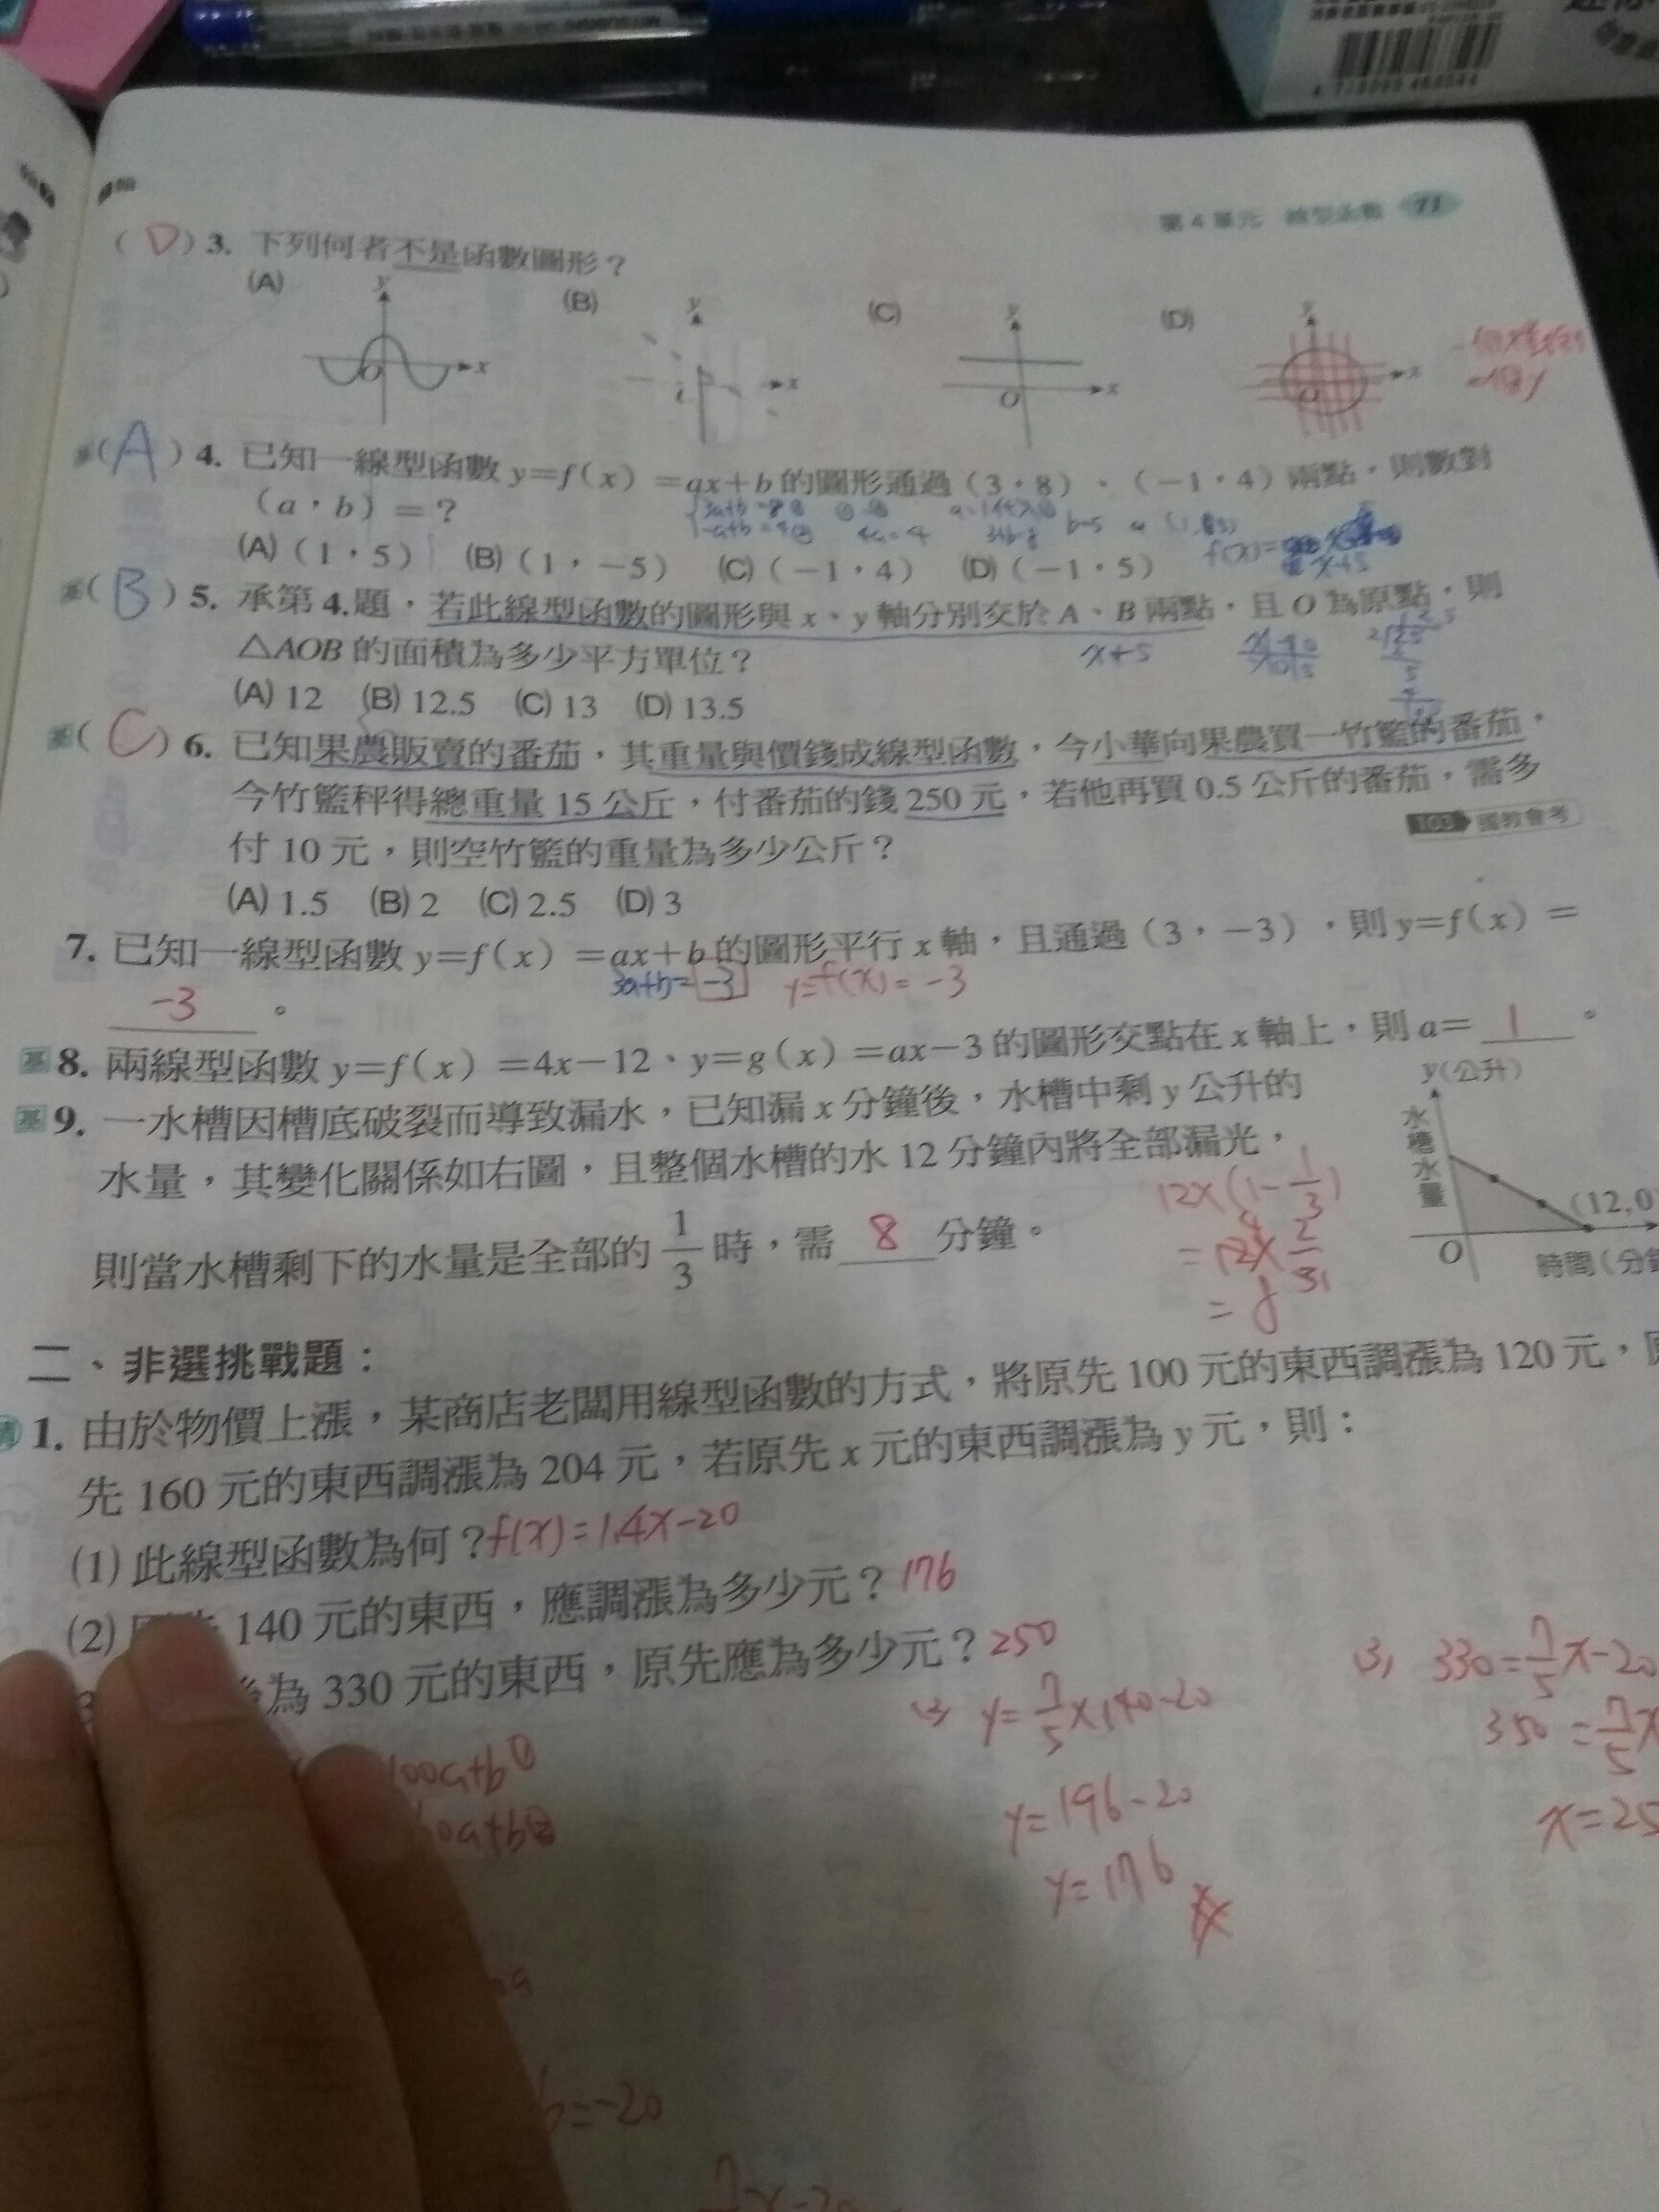 第4單元 線型函數 71
( D ) 3. 下列何者不是函數圖形？
(A) y x O
(B) y x
(C) y x O
(D) y x O
( A ) 4. 已知一線型函數 y=f(x)=ax+b 的圖形通過（3，8）、（－1，4）兩點，則數對
（a，b）=？
(A)（1，5） (B)（1，－5） (C)（－1，4） (D)（－1，5）
( B ) 5. 承第4.題，若此線型函數的圖形與 x、y 軸分別交於 A、B 兩點，且 O 為原點，則
△AOB 的面積為多少平方單位？
x+5
(A) 12 (B) 12.5 (C) 13 (D) 13.5
基 ( C ) 6. 已知果農販賣的番茄，其重量與價錢成線型函數，今小華向果農買一竹籃的番茄，
今竹籃秤得總重量 15 公斤，付番茄的錢 250 元，若他再買 0.5 公斤的番茄，需多
付 10 元，則空竹籃的重量為多少公斤？
103 國教會考
(A) 1.5 (B) 2 (C) 2.5 (D) 3
7. 已知一線型函數 y=f(x)=ax+b 的圖形平行 x 軸，且通過（3，－3），則 y=f(x)=
-3 。
3a+b=-3 y=f(x)=-3
基 8. 兩線型函數 y=f(x)=4x－12、y=g(x)=ax－3 的圖形交點在 x 軸上，則 a= 1 。
基 9. 一水槽因槽底破裂而導致漏水，已知漏 x 分鐘後，水槽中剩 y 公升的
水量，其變化關係如右圖，且整個水槽的水 12 分鐘內將全部漏光，
則當水槽剩下的水量是全部的 1/3 時，需 8 分鐘。
12×(1-1/3)
=12×2/3
=8
y(公升)
水槽水量
(12,0
O
時間(分鐘
二、非選挑戰題：
1. 由於物價上漲，某商店老闆用線型函數的方式，將原先 100 元的東西調漲為 120 元，原
先 160 元的東西調漲為 204 元，若原先 x 元的東西調漲為 y 元，則：
(1) 此線型函數為何？f(x)=1.4x-20
(2) 140 元的東西，應調漲為多少元？176
為 330 元的東西，原先應為多少元？250
100a+b①
0a+b②
b=-20
(2) y=7/5×140-20
y=196-20
y=176
(3) 330=7/5x-20
350=7/5x
x=25